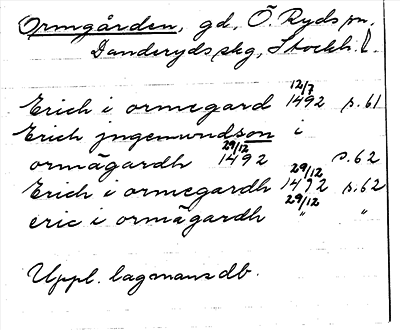 Ormgården, gd, Ö. Ryds sn,
Danderyds skg, Stockh. l.
Erich i ormegard 12/7 1492 s. 61
Erich jngemundson i
ormågardh 29/12 1492 s. 62
Erich i ormegardh 29/12 1492 s. 62
eric i ormågardh 29/12 " "
Uppl. lagmansdb.